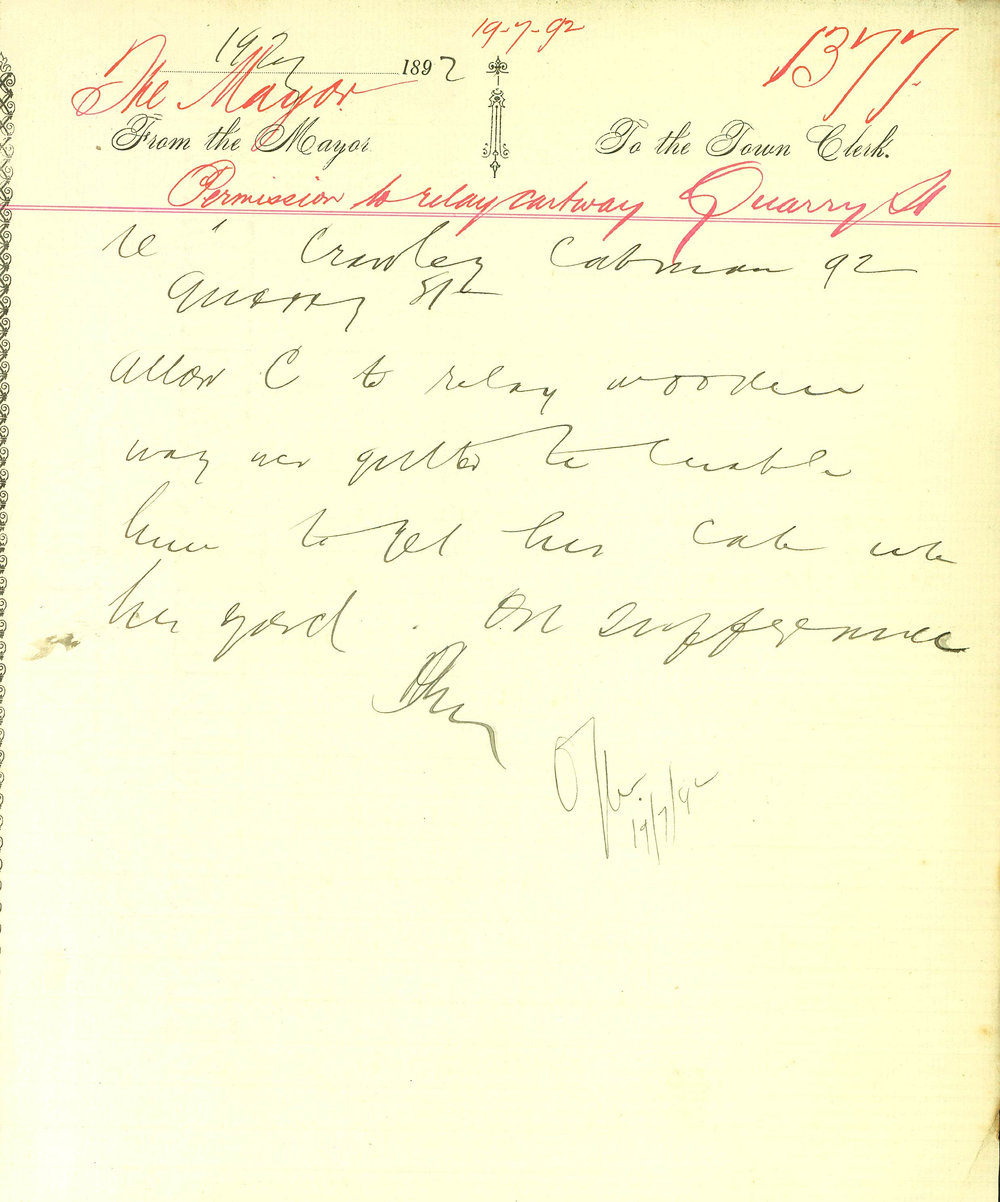 19-7-92
19/7 1892
1377.
The Mayor
From the Mayor
To the Town Clerk.
Permission to relay cartway Quarry St
re Crawley Cabman 92
Quarry St
Allow C to relay wooden
way over gutter to enable
him to get his cab into
his yard. On sufferance
19/7/92